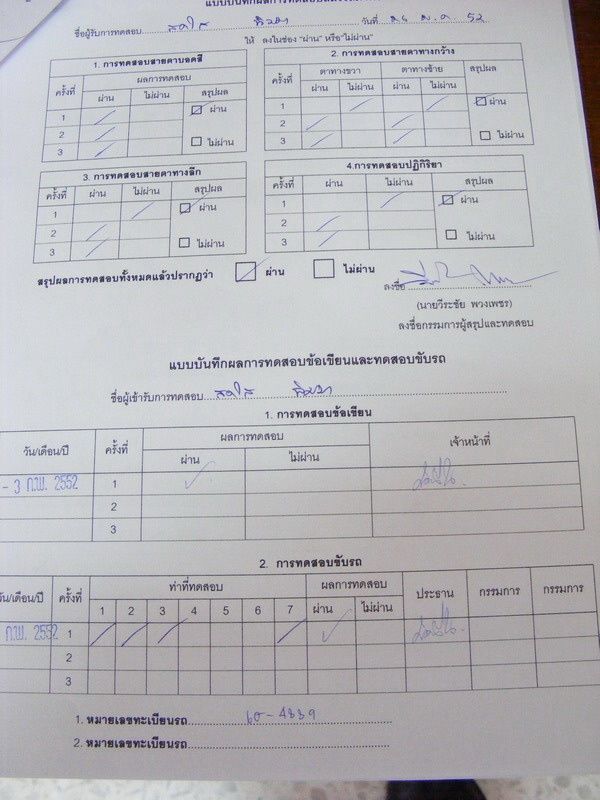 ชื่อผู้รับการทดสอบ วันที่ 52
ให้ ลงในช่อง "ผ่าน" หรือ"ไม่ผ่าน"
1. การทดสอบสายตาบอดสี
ครั้งที่ ผลการทดสอบ สรุปผล
ผ่าน ไม่ผ่าน
1 ผ่าน
2
3 ไม่ผ่าน
2. การทดสอบสายตาทางกว้าง
ครั้งที่ ตาทางขวา ตาทางซ้าย สรุปผล
ผ่าน ไม่ผ่าน ผ่าน ไม่ผ่าน
1 ผ่าน
2
3 ไม่ผ่าน
3. การทดสอบสายตาทางลึก
ครั้งที่ ผ่าน ไม่ผ่าน สรุปผล
1 ผ่าน
2
3 ไม่ผ่าน
4.การทดสอบปฏิกิริยา
ครั้งที่ ผ่าน ไม่ผ่าน สรุปผล
1 ผ่าน
2
3 ไม่ผ่าน
สรุปผลการทดสอบทั้งหมดแล้วปรากฏว่า ผ่าน ไม่ผ่าน
ลงชื่อ
(นายวีระชัย พวงเพชร)
ลงชื่อกรรมการผู้สรุปและทดสอบ
แบบบันทึกผลการทดสอบข้อเขียนและทดสอบขับรถ
ชื่อผู้เข้ารับการทดสอบ
1. การทดสอบข้อเขียน
วัน/เดือน/ปี ครั้งที่ ผลการทดสอบ เจ้าหน้าที่
ผ่าน ไม่ผ่าน
- 3 ก.พ. 2552 1
2
3
2. การทดสอบขับรถ
วัน/เดือน/ปี ครั้งที่ ท่าที่ทดสอบ ผลการทดสอบ ประธาน กรรมการ กรรมการ
1 2 3 4 5 6 7 ผ่าน ไม่ผ่าน
ก.พ. 2552 1
2
3
1. หมายเลขทะเบียนรถ 60-4839
2. หมายเลขทะเบียนรถ